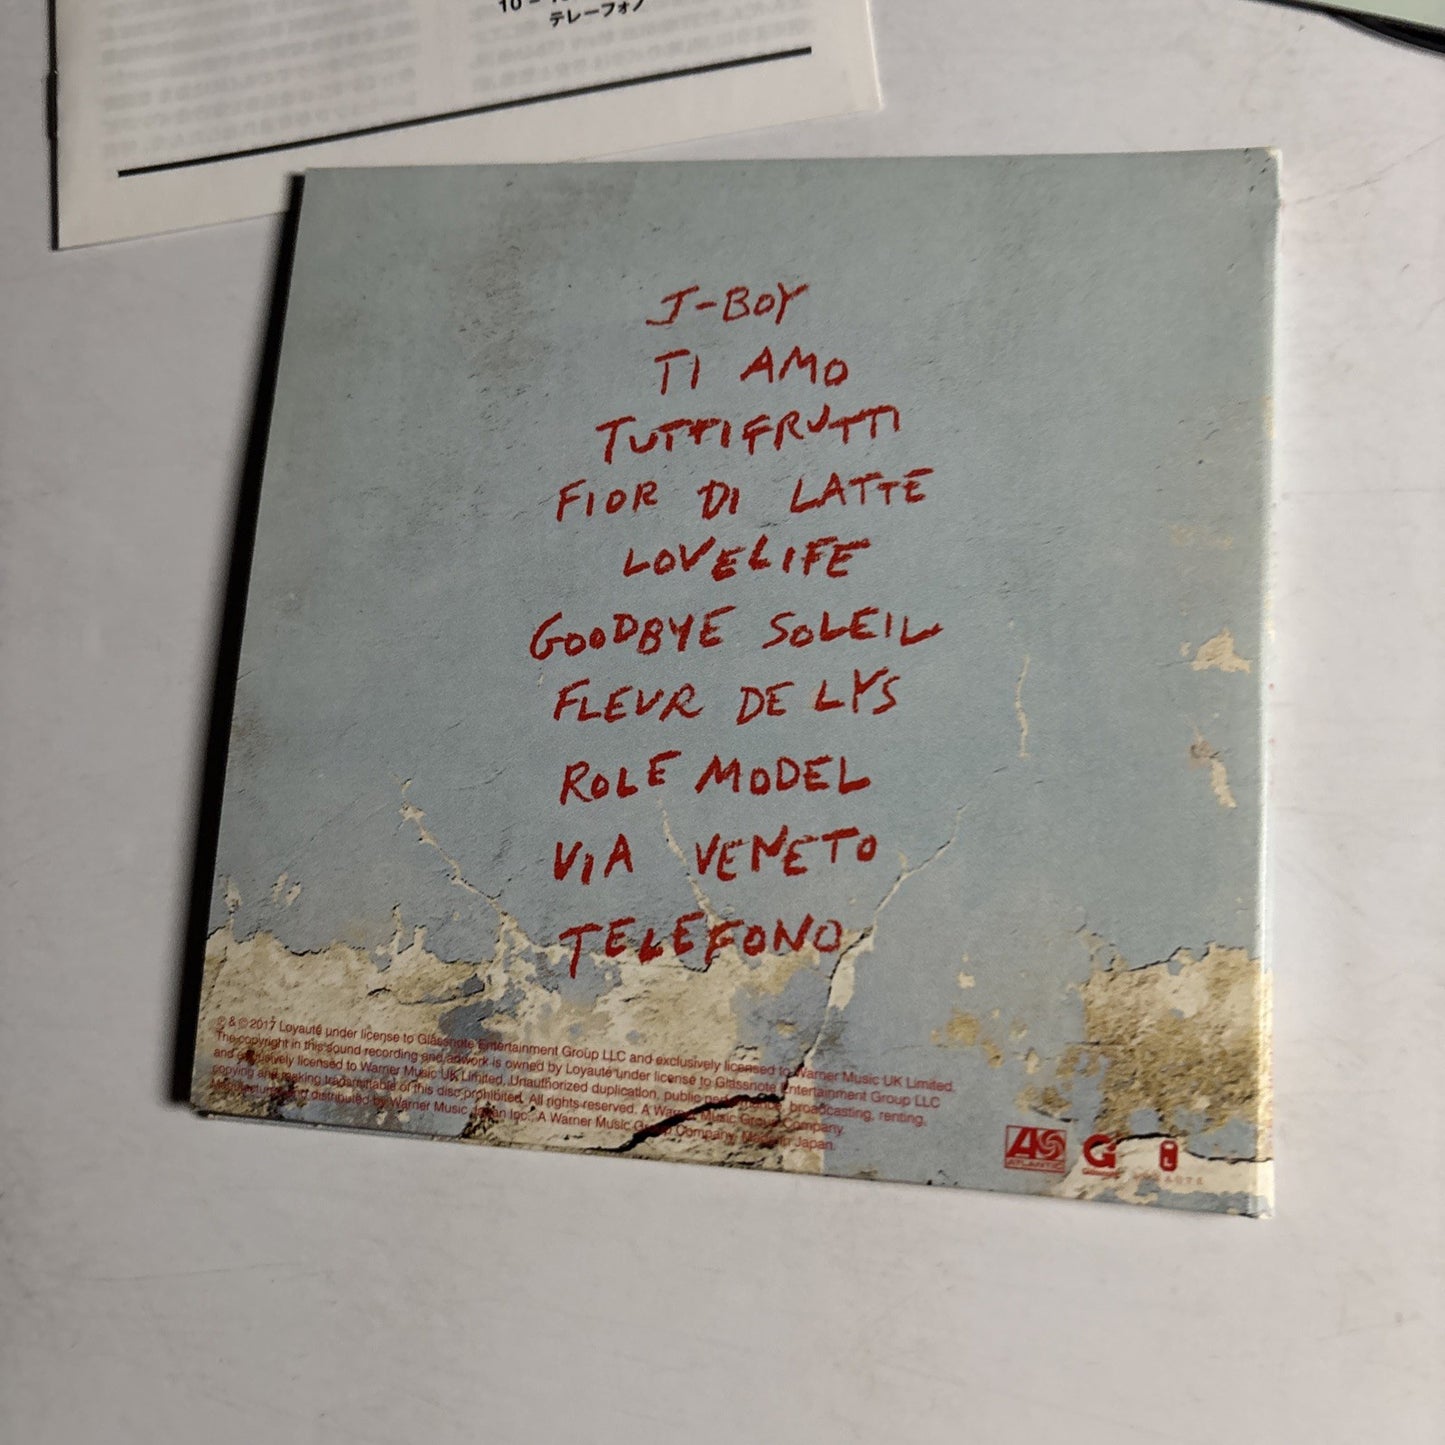 テレーフォノ
J-BOY
TI AMO
TUTTIFRUTTI
FIOR DI LATTE
LOVELIFE
GOODBYE SOLEIL
FLEUR DE LYS
ROLE MODEL
VIA VENETO
TELEFONO
℗ & © 2017 Loyauté under license to Glassnote Entertainment Group LLC and exclusively licensed to Warner Music UK Limited.
The copyright in this sound recording and artwork is owned by Loyauté under license to Glassnote Entertainment Group LLC
and exclusively licensed to Warner Music UK Limited. Unauthorized duplication, public performance, broadcasting, renting,
copying and making transmittable of this disc prohibited. All rights reserved. A Warner Music Group Company.
Manufactured and distributed by Warner Music Japan Inc., A Warner Music Group Company. Made in Japan.
ATLANTIC